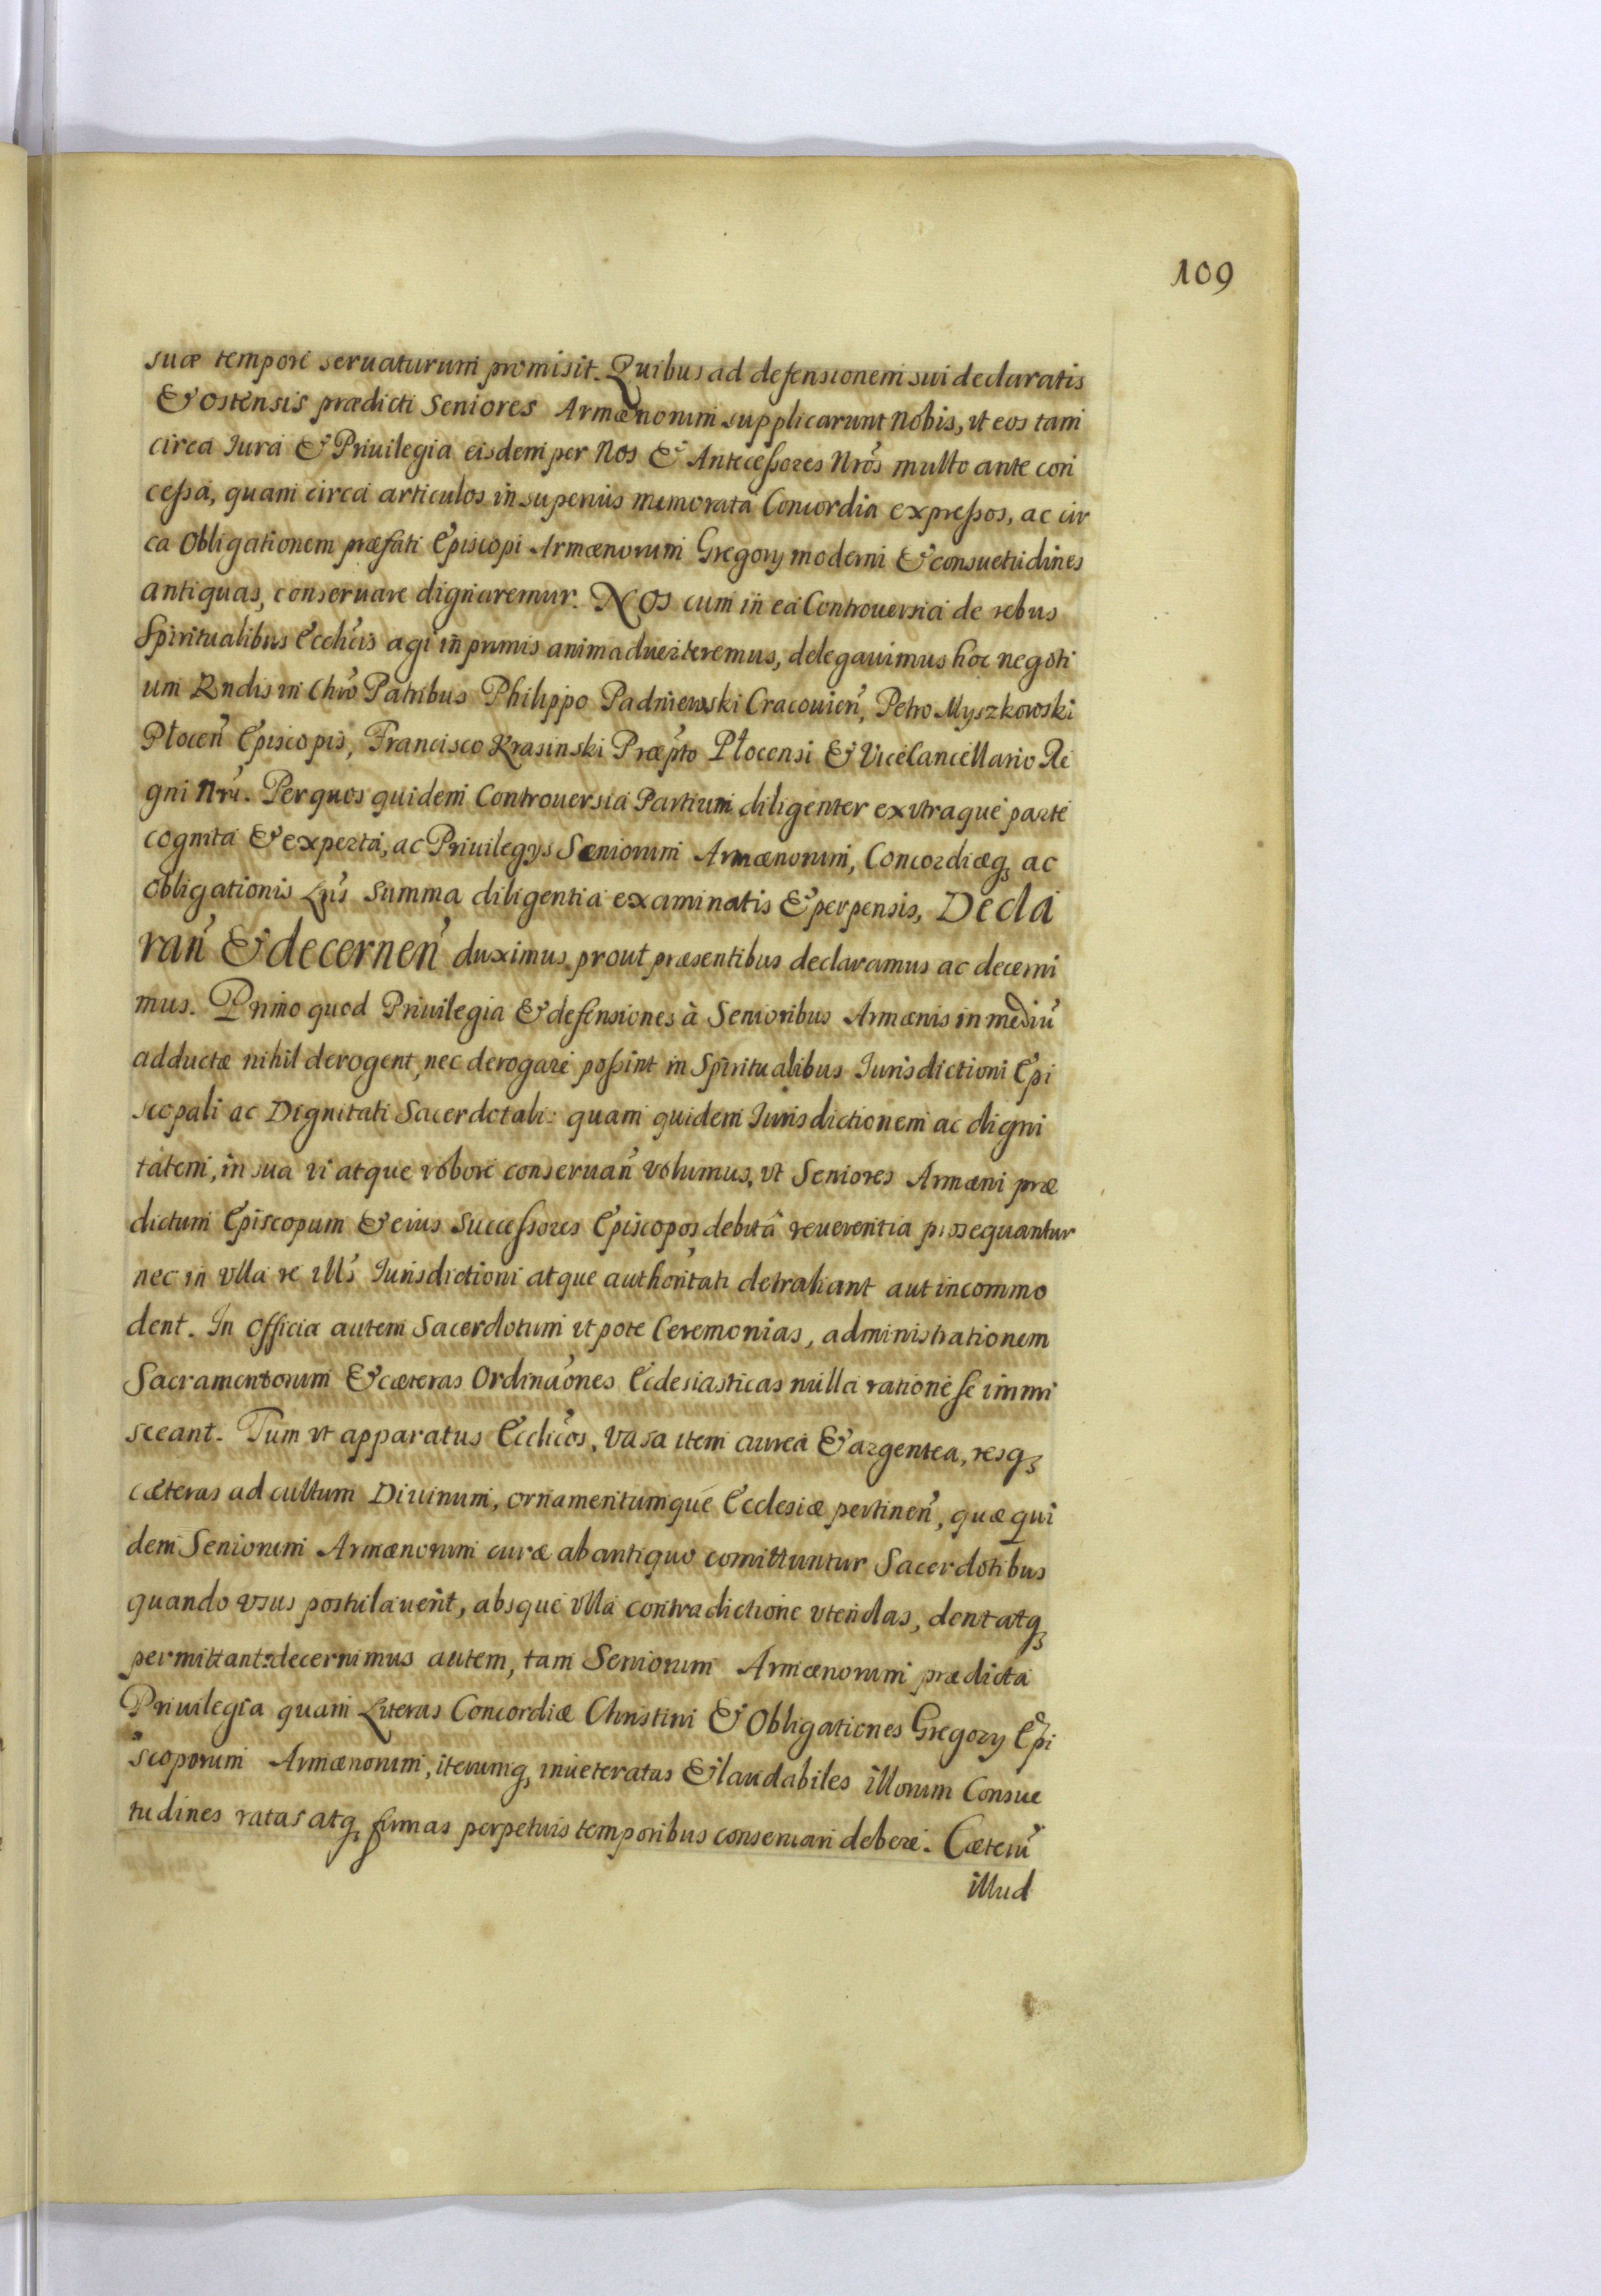 109
suæ tempore seruaturum promisit. Quibus ad defensionem sui declaratis
& ostensis prædicti Seniores Armænorum supplicarunt Nobis, vt eos tam
circa Iura & Priuilegia eisdem per Nos & Antecessores Nros multo ante con
cessa, quam circa articulos in superius memorata Concordia expressos, ac cir
ca Obligationem præfati Episcopi Armænorum Gregorij moderni & consuetudines
antiquas, conseruare dignaremur. Nos cum in ea Controuersia de rebus
Spiritualibus Ecclīcis agi in primis animaduerteremus, delegauimus hoc negoti
um Rndis in Chro Patribus Philippo Padniewski Cracouien, Petro Myszkowski
Płocen Episcopis, Francisco Krasinski Præpto Płocensi & Vicecancellario Re
gni Nri. Per quos quidem Controuersia Partium diligenter ex vtraque parte
cognita & experta, ac Priuilegys Sæniorum Armænorum, Concordiæq, ac
Obligationis Lris summa diligentia examinatis & perpensis, Decla
ran & decernen duximus prout præsentibus declaramus ac decerni
mus. Primo quod Priuilegia & defensiones à Senioribus Armænis in mediū
adductæ nihil derogent, nec derogare possint in Spiritualibus Iurisdictioni Epi
scopali ac Dignitati Sacerdotali: quam quidem Iurisdictionem ac digni
tatem, in sua vi atque robore conseruan volumus, vt Seniores Armæni præ
dictum Episcopum & eius Successores Episcopos debitâ reuerentia prosequantur
nec in vlla re illis Iurisdictioni atque authoritati detrahant aut incommo
dent. In Officia autem Sacerdotum vt pote Ceremonias, administrationem
Sacramentorum & cæteras Ordinaōnes Ecclesiasticas nulla ratione se immi
sceant. Tum vt apparatus Ecclīcos, vasa item aurea & argentea, resq,
cæteras ad cultum Diuinum, ornamentumque Ecclesiæ pertinen, quæ qui
dem Seniorum Armænorum curæ ab antiquo comittuntur Sacerdotibus
quando vsus postulauerit, absque vlla contradictione vtendas, dent atq,
permittant: decernimus autem, tam Seniorum Armænorum prædicta
Priuilegia quam Literas Concordiæ Christini & Obligationes Gregory Epi
scoporum Armænorum, iterumq, inueteratas & laudabiles illorum Consue
tudines ratas atq, firmas perpetuis temporibus conseruari debere. Cæterū
illud